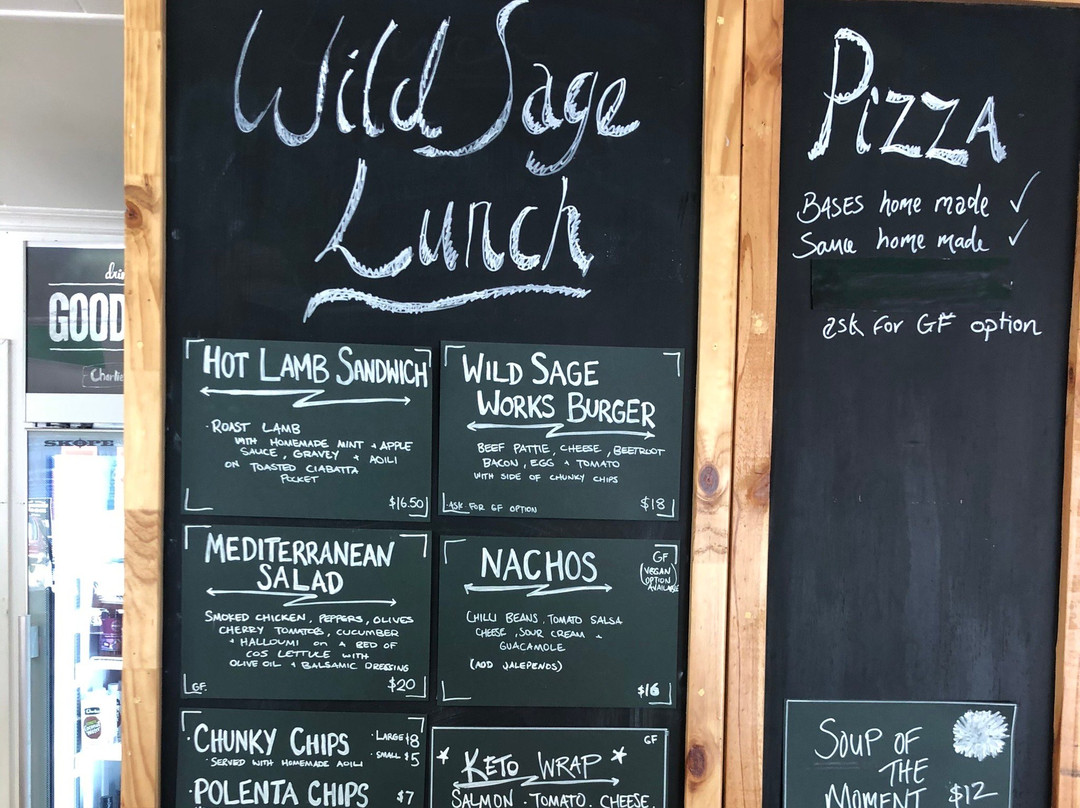 Wild Sage
Lunch
HOT LAMB SANDWICH
· ROAST LAMB
WITH HOMEMADE MINT + APPLE
SAUCE, GRAVEY + AOILI
ON TOASTED CIABATTA
POCKET
$16.50
WILD SAGE
WORKS BURGER
BEEF PATTIE, CHEESE, BEETROOT
BACON, EGG + TOMATO
WITH SIDE OF CHUNKY CHIPS
ASK FOR GF OPTION
$18
MEDITERRANEAN
SALAD
SMOKED CHICKEN, PEPPERS, OLIVES
CHERRY TOMATOES, CUCUMBER
+ HALLOUMI ON A BED OF
COS LETTUCE WITH
OLIVE OIL + BALSAMIC DRESSING
GF.
$20
NACHOS
GF
(VEGAN
OPTION
AVAILABLE
CHILLI BEANS, TOMATO SALSA
CHEESE, SOUR CREAM +
GUACAMOLE
(ADD JALEPENOS)
$16
· CHUNKY CHIPS
· LARGE $8
· SMALL $5
· SERVED WITH HOMEMADE AOILI
· POLENTA CHIPS $7
GF
* KETO WRAP *
SALMON · TOMATO · CHEESE,
PIZZA
BASES home made ✓
Sauce home made ✓
ask for GF option
SOUP OF
THE
MOMENT $12
GOOD
Charlie
SKOPE